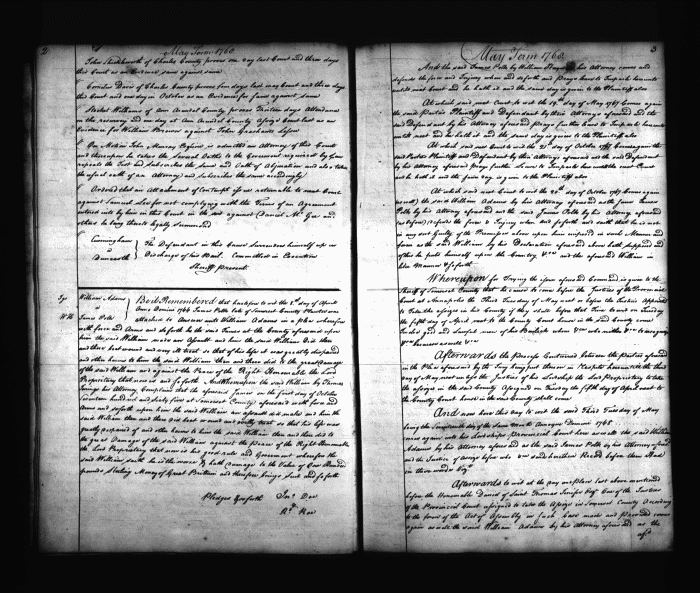 2
May Term 1768
John Shuttleworth of Charles County proves one day last Court and three days
this Court as an Evidence same against same
Cornelius Davis of Charles County proves four days last May Court and three days
this Court and one day in October as an Evidence for same against same
Stockett Williams of Ann Arundel County proves Twelve days Attendance
in the recovery and one day at Ann Arundel County Assizes Court last as an
Evidence for William Brewer against John Gassaway Lessee
On Motion John Murray Esquire is admitted an Attorney of this Court
and thereupon he takes the several Oaths to the Government required by Law
repeats the Test and Subscribes the same and Oath of Abjuration and also takes
the usual oath of an Attorney and Subscribes the same accordingly
Ordered that an Attachment of Contempt issue returnable to next Court
against Samuel for not complying with the Terms of an Agreement
entered into by him in this Court in the suit against Daniel and
others he being thereto legally Summoned
Cunningham
vs
Duncastle
The Defendant in this Cause Surrenders himself up in
Discharge of his Bail. Committed in Execution
Sheriff Present
William Adams
vs
James Polk
Be it Remembered that heretofore to wit the 2d day of April
Anno Domini 1766 James Polk late of Somerset County Planter was
Attached to Answer unto William Adams in a plea wherefore
with force and Arms and so forth he the said James at the County aforesaid upon
him the said William made an Assault and him the said William did then
and there beat wound and evilly treat so that of his life it was greatly despaired
and other harms to him the said William then and there did to the great damage
of the said William and against the Peace of the Right Honourable the Lord
Proprietary that now is and so forth And Whereupon the said William by Thomas
his Attorney Complains that the aforesaid James on the first day of October
seventeen hundred and sixty five at Somerset County aforesaid with force and
Arms and so forth upon him the said William an assault did make and him the
said William then and there did beat wound and evilly treat so that his life was
greatly despaired of and other harms to him the said William then and there did to
the great Damage of the said William against the Peace of the Right Honourable
the Lord Proprietary that now is his good rule and Government wherefore the
said William saith he is the worse & hath damage to the Value of One Hundred
pounds Sterling Money of Great Britain and thereupon brings Suit and so forth
Pledges &c so forth Jno. Doe
Rd. Roe
3
May Term 1768
And the said James Polk by William his Attorney comes and
defends the force and Injury when and so forth and prays leave to Imparle hereunto
until next Court and he hath it and the same day is given to the Plaintiff also
At which said next Court to wit the 19th day of May 1767 Comes again
the said Parties Plaintiff and Defendant by their Attorneys aforesaid and the
said Defendant by his Attorney aforesaid prays further leave to Imparle hereunto
until next and he hath it and the same day is given to the Plaintiff also
At which said next Court to wit the 21st day of October 1767 Comes again the
said Parties Plaintiff and Defendant by their Attorneys aforesaid and the said Defendant
by his attorney aforesaid prays further leave to Imparle hereunto until the next Court
and he hath it and the same day is given to the Plaintiff also
At which said next Court to wit the 20th day of October 1767 Comes again
as well the said William Adams by his Attorney aforesaid as the said James
Polk by his attorney aforesaid and the said James Polk by his Attorney aforesaid
as before defends the force & Injury when and so forth and saith that he is not
in any sort Guilty of the Premises above upon him imposed in such Manner and
form as the said William by his Declaration aforesaid above hath supposed and
of this he puts himself upon the Country &ca and the aforesaid William in
like Manner & so forth
Whereupon for Trying the issue aforesaid Command is given to the
Sheriff of Somerset County that he cause to come before the Justices of the Provincial
Court at Annapolis the Third Tuesday of May next or before the Justices Appointed
to Take the assizes in his County if they shall before that Time to wit on Tuesday
the fifth day of April next to the County Court house in the said County come
twelve good and lawful men of his Bailiwick whom &ca who neither &ca to recognize
&ca because as well &ca
Afterwards the Process Continued between the Parties aforesaid
in the Plea aforesaid by the Jury being put thereon in Respite hereuntil the third
day of May next unless the Justices of his Lordship the Lord Proprietary to take
the assizes in the said County Assigned on Tuesday the fifth day of April next to
the County Court house in the said County shall come
And now here this day to wit the said Third Tuesday of May
being the Seventeenth day of the same Month Anno Domini 1768
comes again into his Lordships Provincial Court here as well the said William
Adams by his Attorney aforesaid as the said James Polk by his Attorney aforesaid
and the Justices of Assizes before who &ca send hither their Record before them Had
in these words to wit
Afterwards to wit at the day and place last above mentioned
before the Honorable Daniel of Saint Thomas Jenifer Esqr. One of the Justices
of the Provincial Court assigned to take the Assizes in Somerset County According
to the form of the Act of Assembly in such Case made and provided comes
again as well the said William Adams by his Attorney aforesaid as the